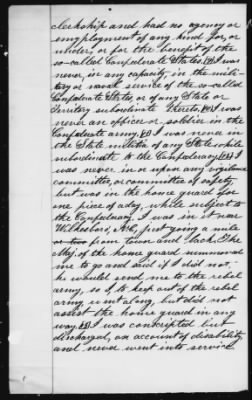 clerkship and had no agency or
employment of any kind for, or
under, or for the benefit of the
so-called Confederate States. I was
never, in any capacity, in the mili-
tary or naval service of the so-called
Confederate States, or of any State or
Territory subordinate thereto. I was
never an officer or soldier in the
Confederate army. I was never in
the State militia of any State while
subordinate to the Confederacy. I
was never in or upon any vigilance
committee, or committee of safety,
but was in the home guard for
one piece of a day, while subject to
the Confederacy. I was in it near
Wilkesboro, N.C., just going a mile
or two from town and back. The
Maj. of the home guard summoned
me to go and said if I did not go
he would send me to the rebel
army, so I, to keep out of the rebel
army went along, but did not
assist the home guard in any
way. I was conscripted but
discharged, on account of disability
and never went into service.